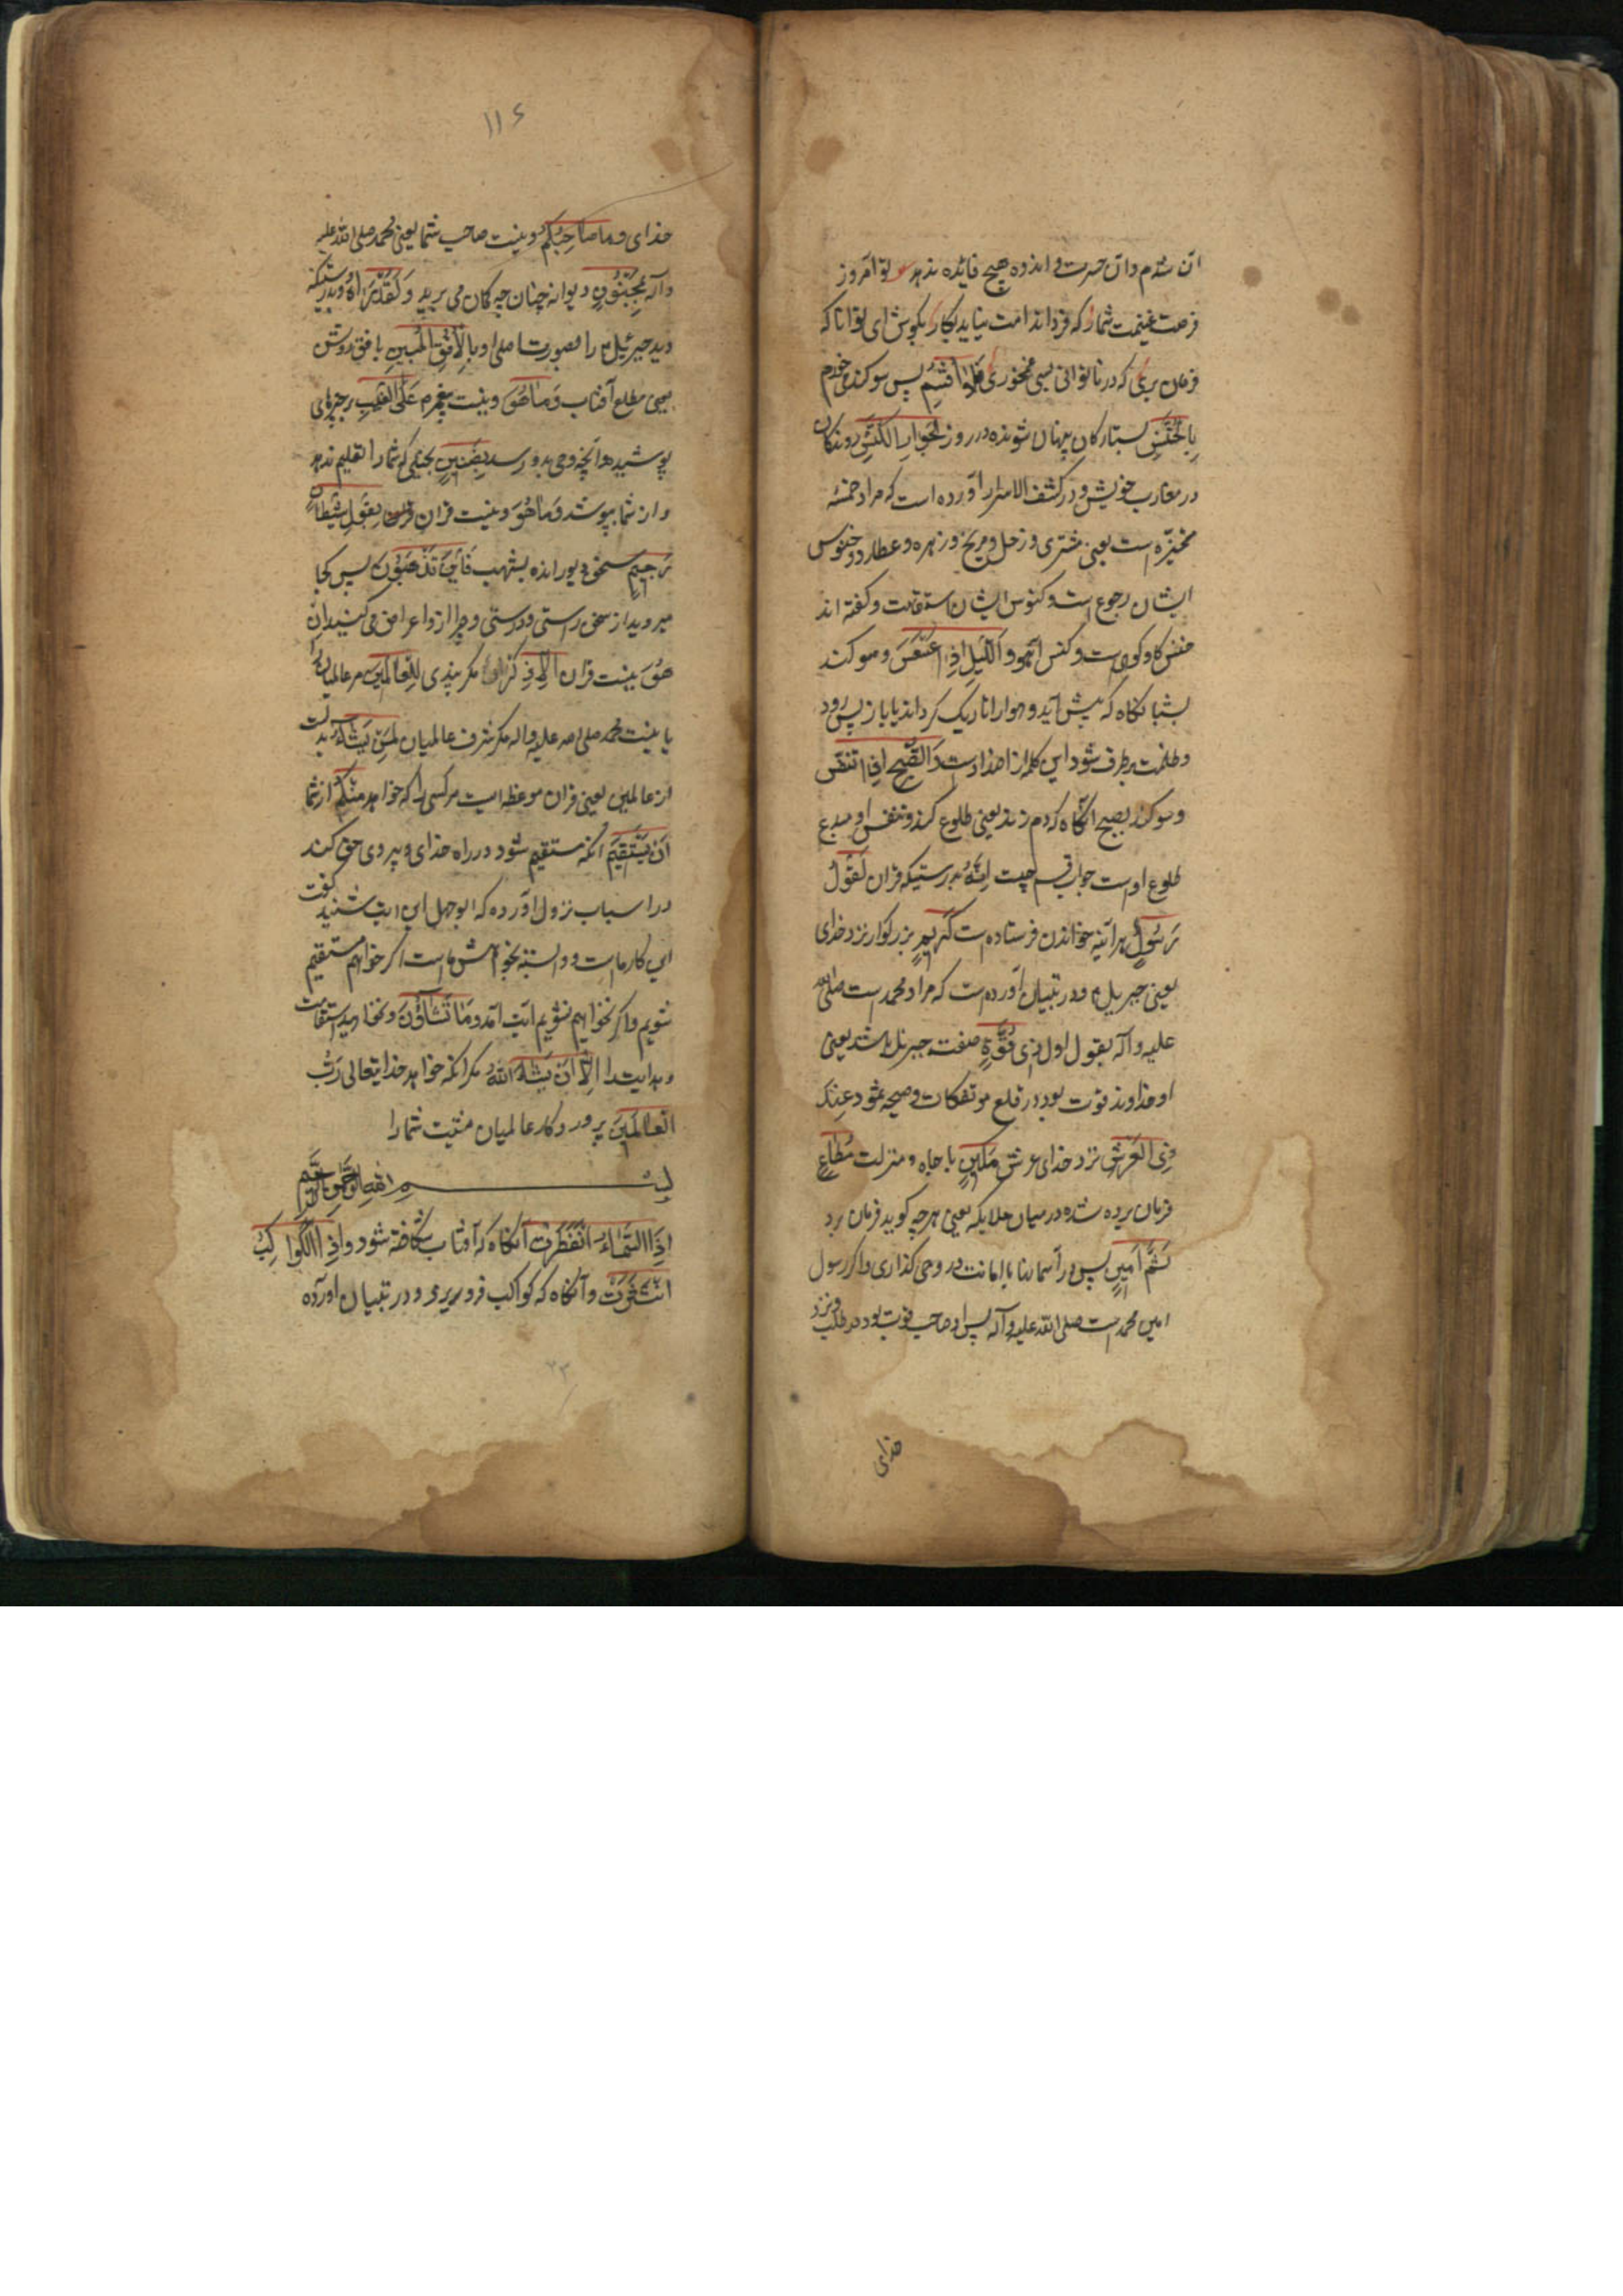 آن شدم و آن حسرت و اندوه هیچ فائده ندهد تو امروز
فرصت غنیمت شمار که فردا ندامت نیاید بکار بکوش ای توانا که
فرمان بری که در ناتوانی بسی غم خوری فَلَا أُقْسِمُ پس سوکند می خورم
بِالْخُنَّسِ بستارکان پنهان شونده در روز الْجَوَارِ الْكُنَّسِ روندکان
در مغارب خویش و در کشف الاسرار آورده است که مراد خمسهٔ
متحیّره است یعنی مشتری و زحل و مریخ و زهره و عطارد و خنوس
ایشان رجوع است و کنوس ایشان استقامت و کفته اند
خنس کاو کوهی است و کنس آهو وَاللَّيْلِ إِذَا عَسْعَسَ و سوکند
بشب انکاه که پیش آید و هوا را تاریک کرداند یا باز پس رود
و ظلمت برطرف شود این کلمه از اضداد است وَالصُّبْحِ إِذَا تَنَفَّسَ
و سوکند بصبح آنکاه که دم زند یعنی طلوع کند و تنفس او مبدع
طلوع اوست جواب قسم چیست إِنَّهُ بدرستیکه قران لَقَوْلُ
رَسُولٍ هرآینه خواندن فرستاده است كَرِيمٍ بزرکوار نزد خدای
یعنی جبریل و در تبیان آورده است که مراد محمد است صلی الله
علیه و آله بقول اول ذِي قُوَّةٍ صفت جبرئیل باشد یعنی
او خداوند قوت بود در قلع موتفکات و صیحه ثمود عِندَ
ذِي الْعَرْشِ نزد خدای عرش مَكِينٍ با جاه و منزلت مُطَاعٍ
فرمان برده شده در میان ملایکه یعنی هرچه کوید فرمان برد
ثَمَّ أَمِينٍ پس در آسمانها با امانت در وحی کذاری و اکر رسول
امین محمد است صلی الله علیه و آله پس او صاحب قوت بود در طلب و نزد
خدای
۱۱۶
خدای وَمَا صَاحِبُكُمْ و نیست صاحب شما یعنی محمد صلی الله علیه
و آله بِمَجْنُونٍ دیوانه چنان چه کمان می برید وَلَقَدْ رَآهُ و بدرستیکه
دید جبرئیل را بصورت اصلی او بِالْأُفُقِ الْمُبِينِ بافق روشن
یعنی مطلع آفتاب وَمَا هُوَ و نیست پیغمبرم عَلَى الْغَيْبِ بر چیزهای
پوشیده و آنچه وحی بدو رسد بِضَنِينٍ بخیلی که شما را تعلیم ندهد
و از شما بپوشد وَمَا هُوَ و نیست قران بِقَوْلِ شَيْطَانٍ
رَّجِيمٍ سخن دیو رانده بشهب فَأَيْنَ تَذْهَبُونَ پس کجا
میروید از سخن راستی و درستی و چرا ازو اعراض می کنید إِنْ
هُوَ نیست قران إِلَّا ذِكْرٌ مکر پندی لِّلْعَالَمِينَ مر عالمیان را
یا نیست محمد صلی الله علیه و اله مکر شرف عالمیان لِمَن شَاءَ
از عالمین یعنی قران موعظه است هر کسی را که خواهد مِنكُمْ از شما
أَن يَسْتَقِيمَ انکه مستقیم شود در راه خدای و پیروی حق کند
در اسباب نزول آورده که ابوجهل این آیت شنید کفت
این کار ماست و وابسته بخواهش ماست اکر خواهیم مستقیم
شویم و اکر نخواهیم نشویم آیت آمد وَمَا تَشَاؤُنَ و نخواهید استقامت
و هدایت را إِلَّا أَن يَشَاءَ اللَّهُ مکر آنکه خواهد خدایتعالی رَبُّ
الْعَالَمِينَ پروردکار عالمیان مشیت شما را
بسم الله الرحمن الرحیم
إِذَا السَّمَاءُ انفَطَرَتْ آنکاه که آفتاب شکافته شود وَإِذَا الْكَوَاكِبُ
انتَثَرَتْ و آنکاه که کواکب فرو ریزد و در تبیان آورده
۲۳